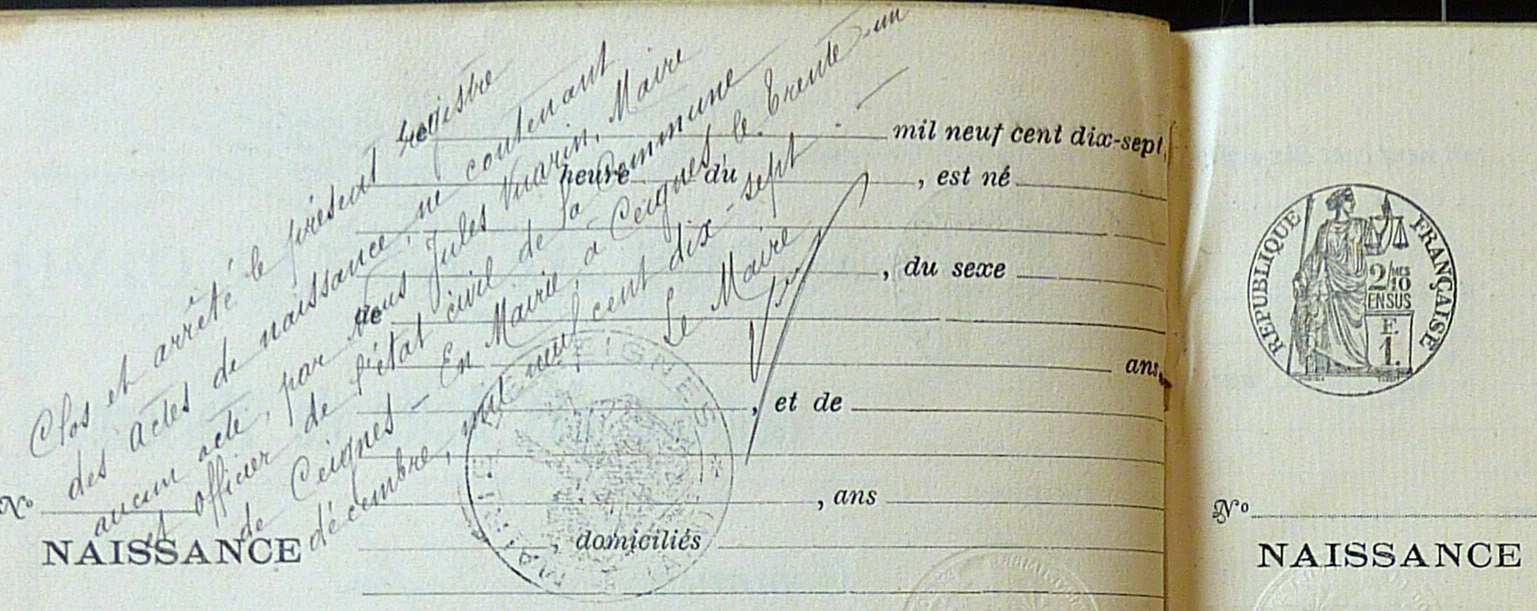 Clos et arrêté le présent registre
des actes de naissance, ne contenant
aucun acte, par nous Jules Vuarin, Maire
et officier de l'état civil de la Commune
de Ceignes - En Mairie, à Ceignes, le trente-un
décembre, mil neuf cent dix-sept. -
Le Maire
Le mil neuf cent dix-sept,
heure du , est né
, du sexe
de
ans,
, et de
, ans
, domiciliés
No
NAISSANCE
MAIRIE DE CEIGNES * (AIN) *
RÉPUBLIQUE FRANÇAISE
2/10 MES
EN SUS
E
1.
No
NAISSANCE